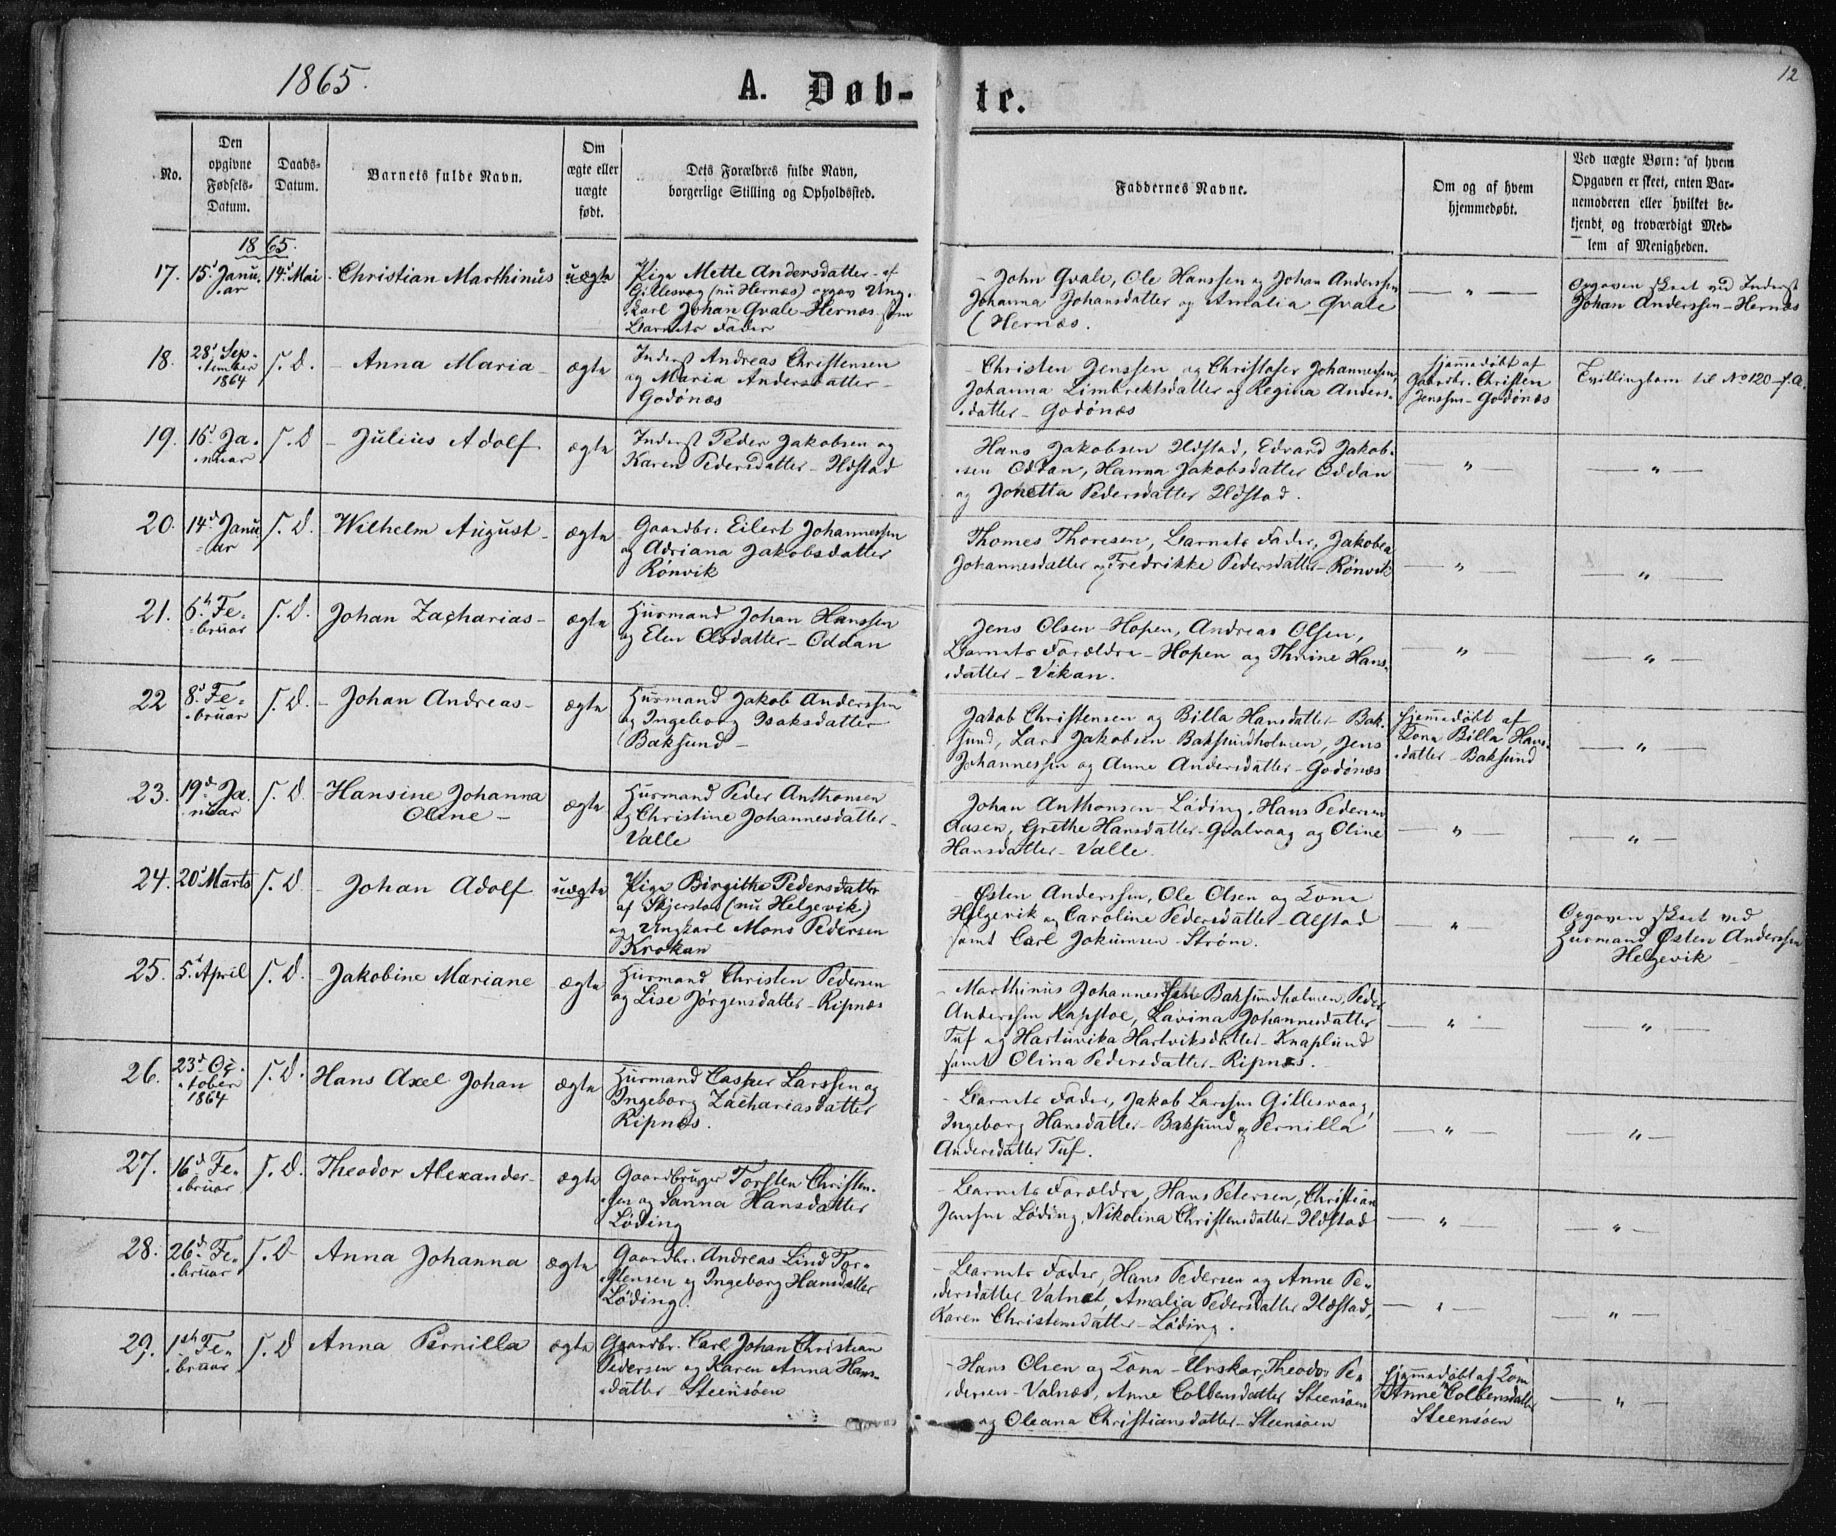 1865.
A. Døb-
te.
12
No.
Den
opgivne
Fødsels-
Datum.
Daabs-
Datum.
Barnets fulde Navn.
Om
ægte eller
uægte
født.
Dets Forældres fulde Navn,
borgerlige Stilling og Opholdssted.
Faddernes Navne.
Om og af hvem
hjemmedøbt.
Ved uægte Børn: af hvem
Opgaven er skeet, enten Bar-
nemoderen eller hvilket be-
kjendt og troværdigt Med-
lem af Menigheden.
1865.
17.
15d Janu-
ar
14d Mai
Christian Marthinus
uægte
Pige Mette Andersdatter af
Gillesvog (nu Hernæs) opgav Ung-
karl Johan Qvale Hernæs som
Barnets Fader
John Qvale, Ole Hanssen og Johan Anderssen
Johanna Johansdatter og Amalia Qvale
(Hernæs.
— " —
Opgaven skeet ved Inderst
Johan Anderssen-Hernæs
18.
28d Sep-
tember
1864
S. D.
Anna Maria
ægte
Inderst Andreas Christensen
og Maria Andersdatter-
Godønæs
Christen Jenssen og Christofer Johannessen,
Johanna Limbrektsdatter og Regina Anders-
datter-Godønæs
Hjemmedøbt af
Gaardbr. Christen
Jenssen-Godønæs
Tvillingbarn til No 120 f. A.
19.
16d Ja-
nuar
S. D
Julius Adolf
ægte
Inderst Peder Jakobsen og
Karen Pedersdatter-Ildstad
Hans Jakobsen Ildstad, Edvard Jakob-
sen Oddan, Hanna Jakobsdatter Oddan
og Jonetta Pedersdatter Ildstad.
— " —
— " —
20.
14d Janu
ar
S. D.
Wilhelm August
ægte
Gaardbr. Eilert Johannessen
og Adriana Jakobsdatter
Rønvik
Thomes Thoresen, Barnets Fader, Jakobea
Johannesdatter og Fredrikke Pedersdatter-Rønvik
— " —
— " —
21.
6h Fe-
bruar
S. D.
Johan Zacharias
ægte
Husmand Johan Hanssen
og Elen Olsdatter-Oddan
Jens Olsen-Hopen, Andreas Olsen,
Barnets Forældre-Hopen og Thrine Hans-
datter-Vikan.
— " —
— " —
22
8d Fe-
bruar
S. D.
Johan Andreas
ægte
Husmand Jakob Anderssen
og Ingeborg Isaksdatter
Baksund-
Jakob Christensen og Billa Hansdatter Bak-
sund, Lars Jakobsen Baksundholmen, Jens
Johannessen og Anne Andersdatter-Godønæs
Hjemmedøbt af
Kona Billa Hans-
datter-Baksund
— " —
23.
19d Ja-
nuar
S. D.
Hansine Johanna
Oline-
ægte
Husmand Peder Anthonsen
og Christine Johannesdatter-
Valle
Johan Anthonsen-Løding, Hans Pedersen
Aasen, Grethe Hansdatter-Qvalvaag og Oline
Hansdatter-Valle.
— " —
— " —
24.
20d Marts
S. D.
Johan Adolf
uægte
Pige Birgithe Pedersdatter
af Skjerstad (nu Helgevik)
og Ungkarl Mons Pedersen
Krokan
Østen Anderssen, Ole Olsen og Kona
Helgevik og Caroline Pedersdatter-Alstad
samt Carl Jokumsen-Strøm.
— " —
Opgaven skeet ved
Husmand Østen Anderssen
Helgevik
25.
5d April
S. D.
Jakobine Mariane
ægte
Husmand Christen Pedersen
og Lise Jørgensdatter-Ripnæs
Marthinus Johannessen Baksundholmen, Peder
Anderssen Kapstoe, Lavina Johannesdatter
Tuf og Hartuvika Hartviksdatter-Knaplund
samt Olina Pedersdatter-Ripnæs.
— " —
— " —
26.
23d Oc-
tober
1864
S. D.
Hans Axel Johan
ægte
Husmand Casper Larssen og
Ingeborg Zachariasdatter
Ripnæs.
Barnets Fader, Jakob Larssen Gillesvaag,
Ingeborg Hansdatter-Baksund og Pernilla
Andersdatter Tuf.
— " —
— " —
27.
16d Fe-
bruar
S. D.
Theodor Alexander
ægte
Gaardbruger Torsten Christen-
sen og Sanna Hansdatter
Løding
Barnets Forældre, Hans Petersen, Christian
Jenssen Løding, Nikolina Christensdatter-Ildstad
— " —
— " —
28.
26d Fe-
bruar
S. D
Anna Johanna
ægte
Gaardbr. Andreas Lind Tor-
stensen og Ingeborg Hansdatter
Løding.
Barnets Fader, Hans Pedersen og Anne Pe-
dersdatter-Vatnet, Amalia Pedersdatter Ildstad,
Karen Christensdatter-Løding.
— " —
— " —
29.
1sh Fe-
bruar
S. D
Anna Pernilla
ægte
Gaardbr. Carl Johan Christian
Pedersen og Karen Anna Hans-
datter Steensøen
Hans Olsen og Kona-Unskar, Theodor Pe-
dersen-Valnæs, Anne Colbensdatter Steensøen
og Oleana Christiansdatter-Steensøen
Hjemmedøbt af Kona
Anne Colbensdatter
Steensøen
— " —